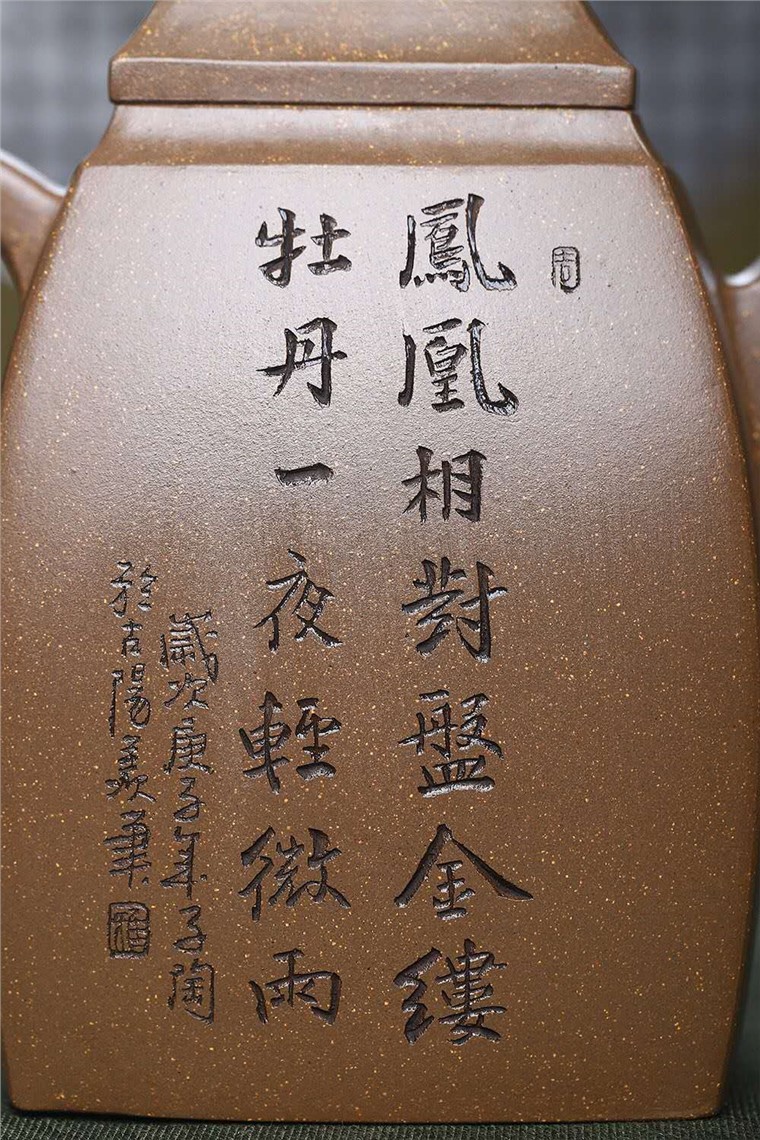 周
鳳凰相對盤金縷
牡丹一夜輕微雨
歲次庚子年子陶
於古陽羨